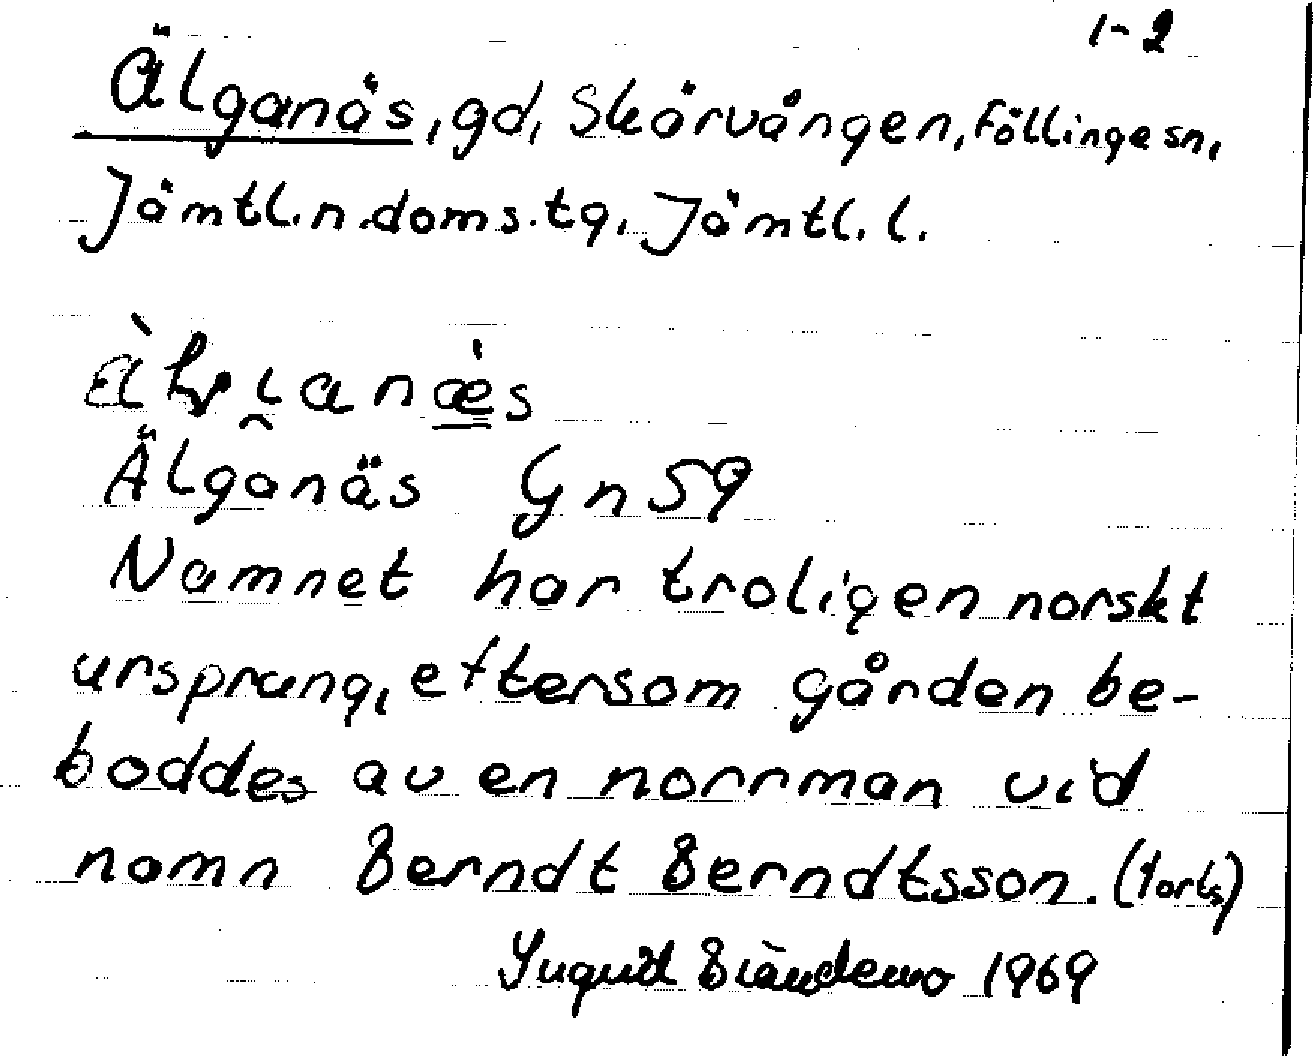 1-2
Älganäs, gd, Skärvången, Föllinge sn,
Jämtl. n. doms. tg. Jämtl. l.
Älganäs Gn 59
Namnet har troligen norskt
ursprung, eftersom gården be-
boddes av en norrman vid
namn Berndt Berndtsson. (forts)
1969